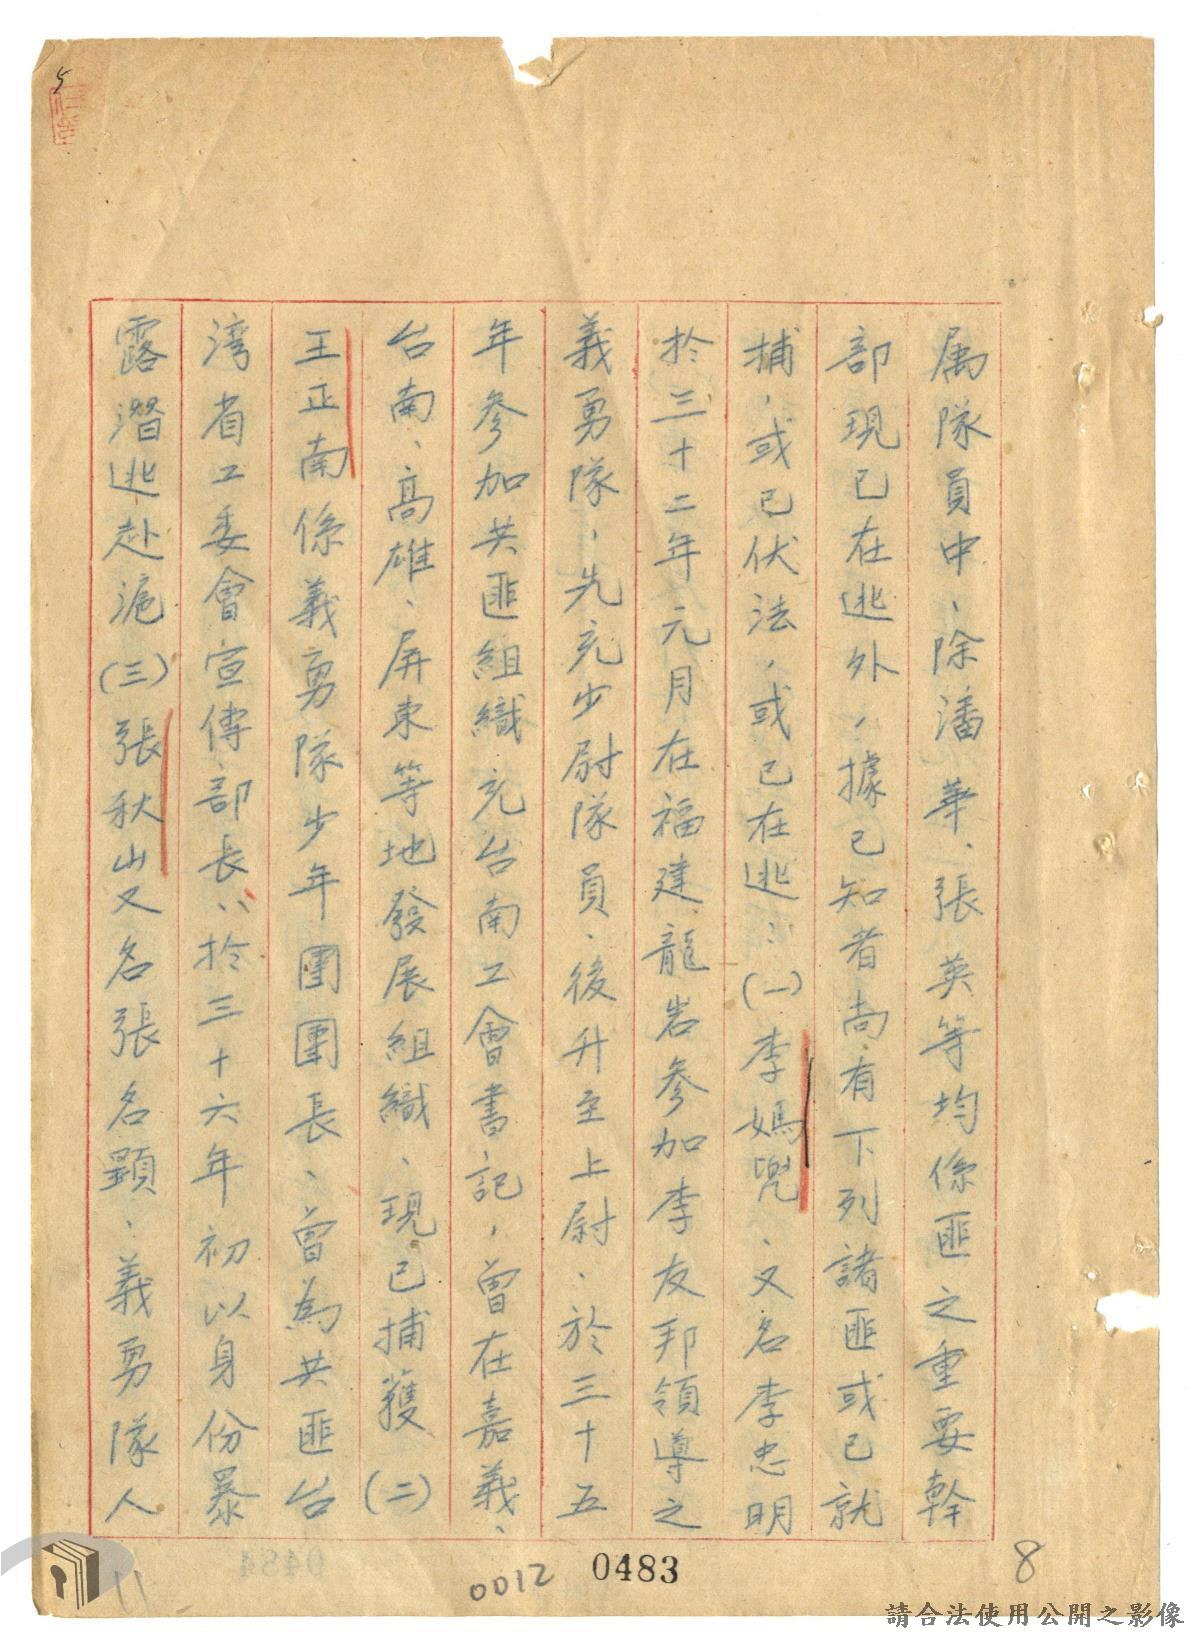 5
属隊員中、除潘華、張英等均係匪之重要幹
部現已在逃外，據已知者尚有下列諸匪或已就
捕，或已伏法，或已在逃：(一)李媽兜、又名李忠明
於三十二年元月在福建龍岩參加李友邦領導之
義勇隊，先充少尉隊員、後升至上尉、於三十五
年參加共匪組織充台南工會書記，曾在嘉義、
台南、高雄、屏東等地發展組織、現已捕獲(二)
王正南係義勇隊少年團團長、曾為共匪台
湾省工委會宣傳部長、於三十六年初以身份暴
露潛逃赴滬(三)張秋山又名張名顕、義勇隊人
0012
0483
8
11
0484
請合法使用公開之影像